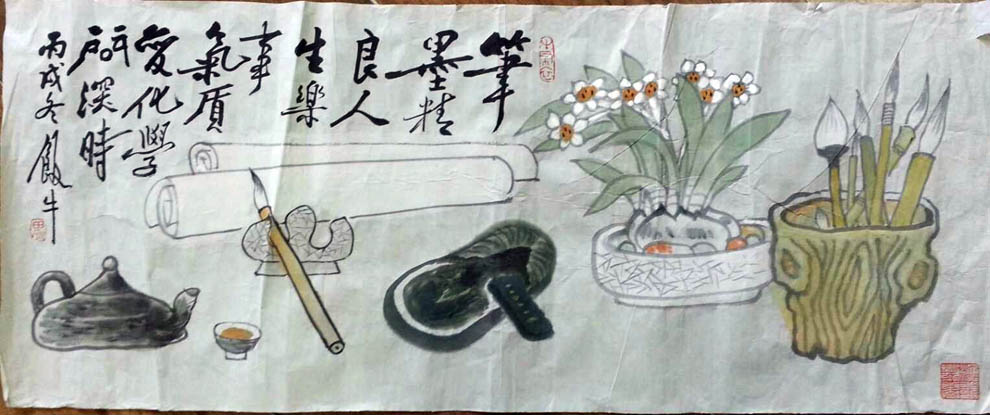 筆
墨精
良人
生樂
事
氣質
變化學
問深時
丙戌冬飯牛